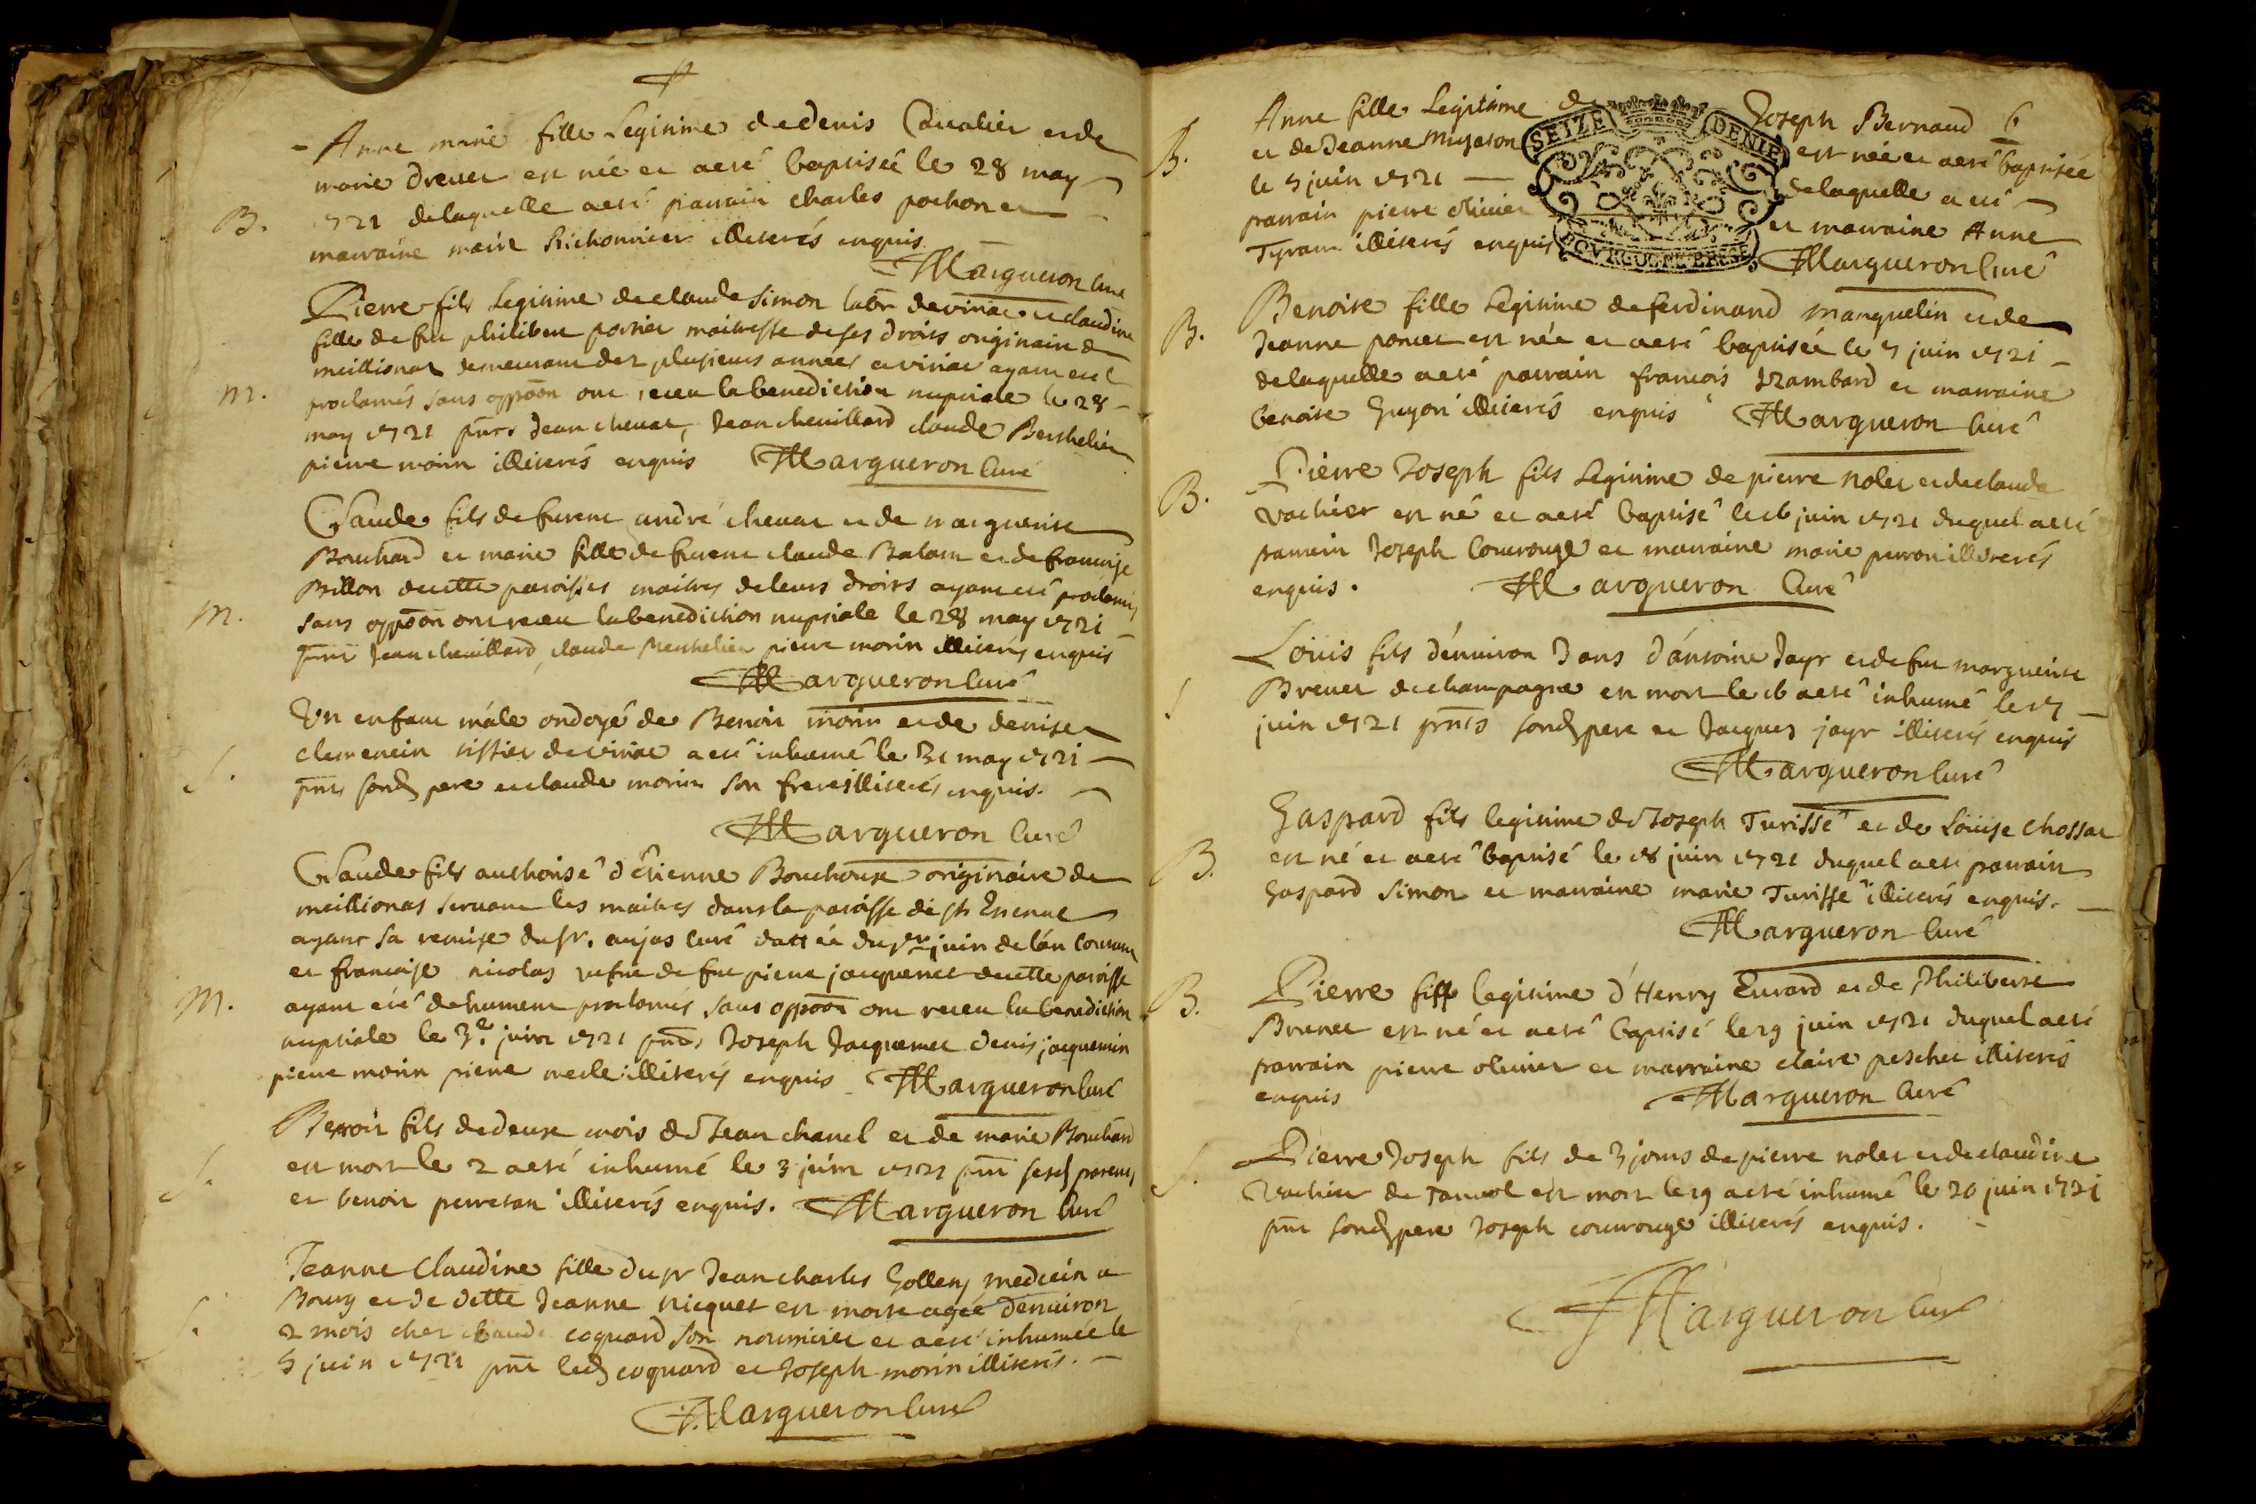 Anne marie fille Legitime de denis Cavalier et de
marie drevet est née et a eté baptisée le 28 may
1721 de laquelle a eté parrain charles pochon et
marraine marie Richonnier illiterés enquis
Margueron Curé
B.
Pierre fils Legitime de claude Simon labr de viriat et claudine
fille de feu philibert portier maitresse de ses droits originaire de
meillionat demeurant dez plusieurs années a viriat ayant eté
proclamés sans oppoōn ont receu la benediction nuptiale le 28
may 1721 pnts Jean chevat, Jean chevillard claude Berthelier
pierre morin illiterés enquis Margueron Curé
M.
Claude fils de furent andré chevat et de marguerite
Bouchard et marie fille de furent claude Balam et de francoise
Billon de cette paroisse maitres de leurs droits ayant eté proclamés
sans oppoōn ont receu la benediction nuptiale le 28 may 1721
pnts Jean chevillard, claude Berthelier pierre morin illiterés enquis
Margueron Curé
M.
Un enfant mâle ondoyé de Benoit morin et de denise
clermencin tissier de viriat a eté inhumé le 31 may 1721
pnts sond pere et claude morin son frere illiterés enquis.
Margueron Curé
S.
Claude fils authorisé d'Etienne Bouchoux originaire de
meillionas servant les maitres dans la paroisse de St Etienne
ayant sa remise du sr. aujas curé dattée du 1er juin de l'an courant
et francoise nicolas vefve de feu pierre jacquemet de cette paroisse
ayant eté dehument proclamés sans oppoōn ont receu la benediction
nuptiale le 3e juin 1721 pnts Joseph Jacquemet denis jacquemin
pierre morin pierre merle illiterés enquis Margueron Curé
M.
Benoit fils de deux mois de Jean chanel et de marie Bouchard
est mort le 2 a eté inhumé le 3 juin 1721 pnt sesd parents
et benoit perretan illiterés enquis. Margueron Curé
S.
Jeanne Claudine fille du sr Jean charles Gollety medecin a
Bourg et de dette Jeanne Nicquet est morte agée denviron
2 mois chez claude coquard son nourricier et a eté inhumée le
5 juin 1721 pnt led coquard et Joseph morin illiterés.
Margueron Curé
S.
6
Anne fille Legitime de Joseph Bernaud
et de Jeanne Mugeron est née et a eté baptisée
le 7 juin 1721 de laquelle a eté
parrain pierre olivier et marraine Anne
Tyrant illiterés enquis Margueron Curé
SEIZE DENIE
BOURGOGNE BRESSE
B.
Benoite fille Legitime de ferdinand manguelin et de
Jeanne poncet est née et a eté baptisée le 7 juin 1721
de laquelle a eté parrain francois Rambard et marraine
benoite Guyon illiterés enquis Margueron Curé
B.
Pierre Joseph fils Legitime de pierre nolet et de claude
Vachier est né et a eté baptisé le 16 juin 1721 duquel a eté
parrain Joseph Courrouge et marraine marie perron illiterés
enquis. Margueron Curé
B.
Louis fils d'environ 3 ans d'antoine Jayr et de feu marguerite
Brevet de champagne est mort le 16 a eté inhumé le 17
juin 1721 pnts sond pere et Jacques jayr illiterés enquis
Margueron Curé
S.
Gaspard fils legitime de Joseph Turissé et de Louise Chossat
est né et a eté baptisé le 18 juin 1721 duquel a eté parrain
Gaspard Simon et marraine marie Turissé illiterés enquis.
Margueron Curé
B.
Pierre fils legitime d'Henry Euvrard et de Philiberte
Brunet est né et a eté baptisé le 19 juin 1721 duquel a eté
parrain pierre olivier et marraine claire peschet illiterés
enquis Margueron Curé
B.
Pierre Joseph fils de 3 jours de pierre nolet et de claudine
Vachier de Tanvol est mort le 19 a eté inhumé le 20 juin 1721
pnt sond pere Joseph courrouge illiterés enquis.
Margueron Curé
S.